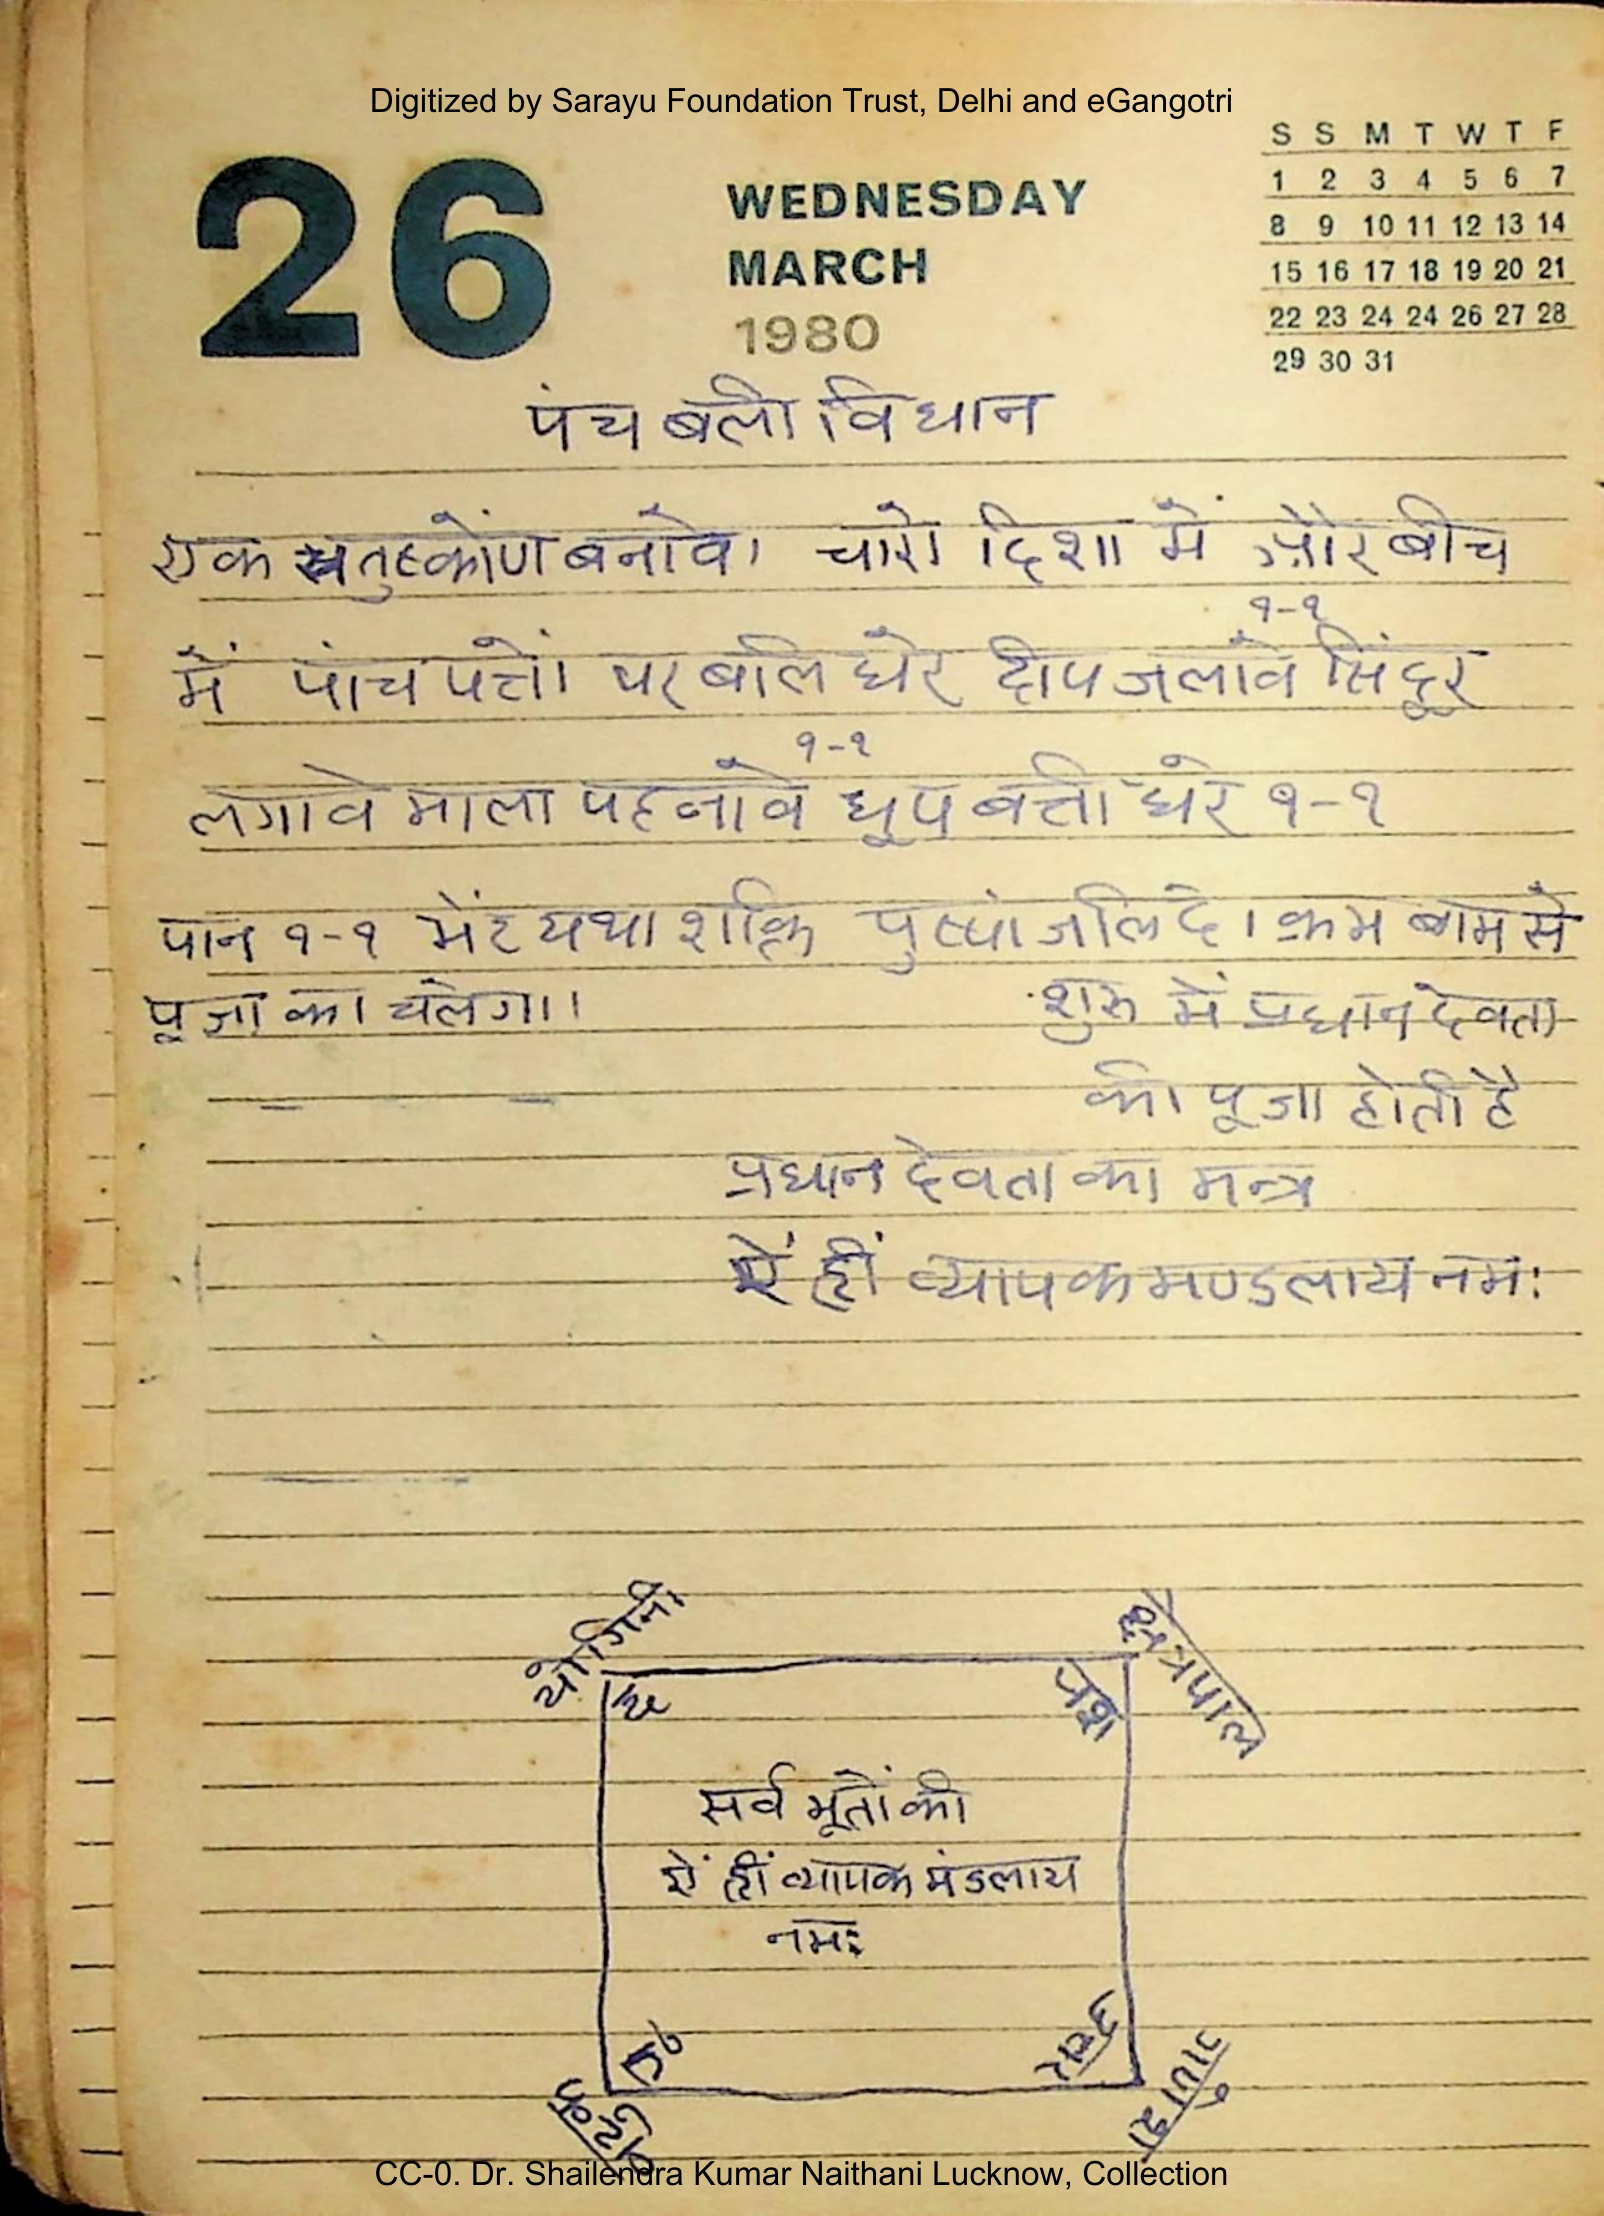 Digitized by Sarayu Foundation Trust, Delhi and eGangotri
26
WEDNESDAY
MARCH
1980
S S M T W T F
1 2 3 4 5 6 7
8 9 10 11 12 13 14
15 16 17 18 19 20 21
22 23 24 24 26 27 28
29 30 31
पंच बली विधान
एक चतुष्कोण बनावे। चारो दिशा में और बीच
१-१
में पांच पत्तों पर बलि धरे दीप जलावे सिंदूर
१-१
लगावे माला पहनावे धूप बत्ती धरे १-१
पान १-१ भेंट यथा शक्ति पुष्पांजलि दे। क्रम बाम से
पूजा का चलेगा। शुरू में प्रधान देवता
की पूजा होती है
प्रधान देवता का मन्त्र
ऐं ह्रीं व्यापक मण्डलाय नमः
योगिनी
क्षेत्रपाल
सर्व भूतों की
ऐं ह्रीं व्यापक मंडलाय
नमः
उत्तर
गणेश
बटुक
CC-0. Dr. Shailendra Kumar Naithani Lucknow, Collection